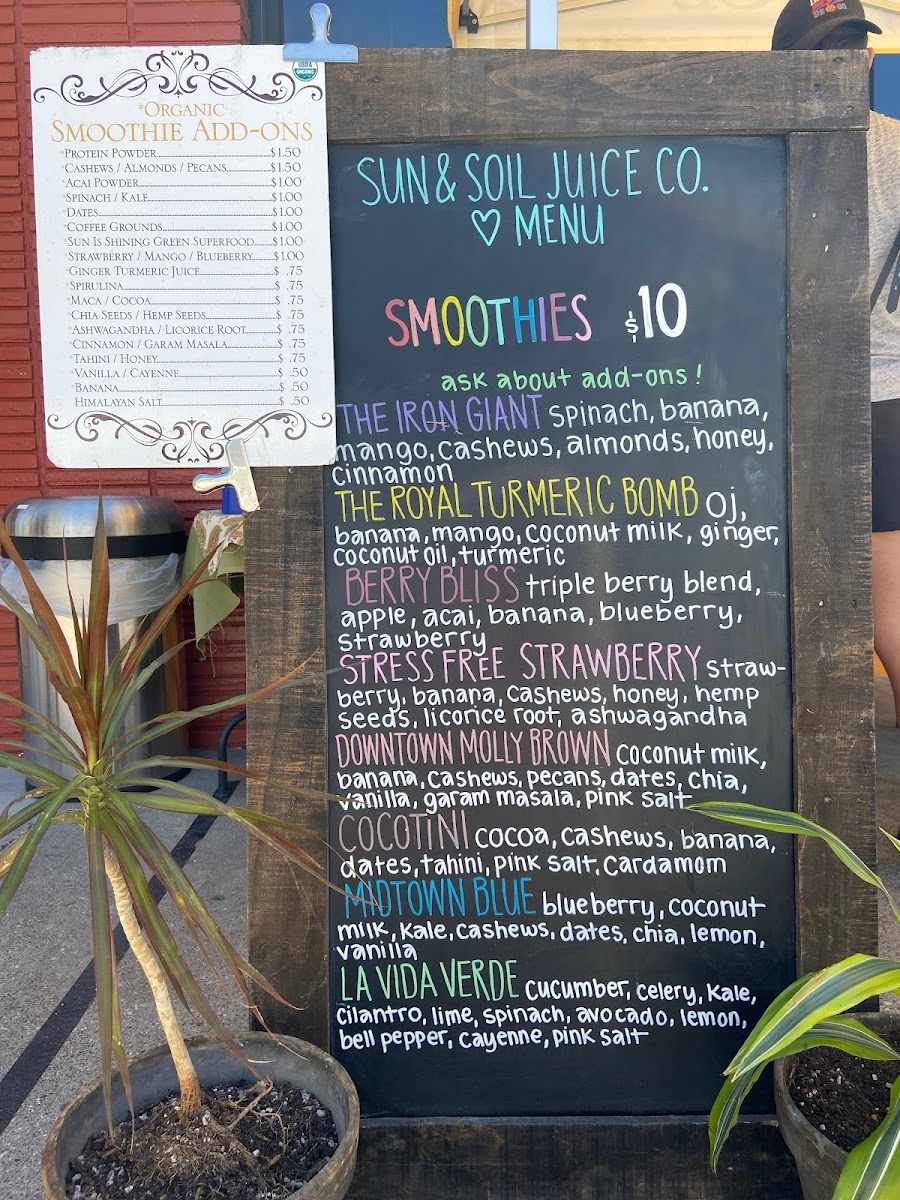 USDA
ORGANIC
*ORGANIC
SMOOTHIE ADD-ONS
*PROTEIN POWDER $1.50
*CASHEWS / ALMONDS / PECANS $1.50
*ACAI POWDER $1.00
*SPINACH / KALE $1.00
*DATES $1.00
*COFFEE GROUNDS $1.00
*SUN IS SHINING GREEN SUPERFOOD $1.00
*STRAWBERRY / MANGO / BLUEBERRY $1.00
*GINGER TURMERIC JUICE $ .75
*SPIRULINA $ .75
*MACA / COCOA $ .75
*CHIA SEEDS / HEMP SEEDS $ .75
*ASHWAGANDHA / LICORICE ROOT $ .75
*CINNAMON / GARAM MASALA $ .75
*TAHINI / HONEY $ .75
*VANILLA / CAYENNE $ .50
*BANANA $ .50
HIMALAYAN SALT $ .50
SUN & SOIL JUICE CO.
♡ MENU
SMOOTHIES $10
ask about add-ons!
THE IRON GIANT spinach, banana,
mango, cashews, almonds, honey,
cinnamon
THE ROYAL TURMERIC BOMB OJ,
banana, mango, coconut milk, ginger,
coconut oil, turmeric
BERRY BLISS triple berry blend,
apple, acai, banana, blueberry,
strawberry
STRESS FREE STRAWBERRY straw-
berry, banana, cashews, honey, hemp
seeds, licorice root, ashwagandha
DOWNTOWN MOLLY BROWN coconut milk,
banana, cashews, pecans, dates, chia,
vanilla, garam masala, pink salt
COCOTiNI cocoa, cashews, banana,
dates, tahini, pink salt, cardamom
MIDTOWN BLUE blueberry, coconut
milk, kale, cashews, dates, chia, lemon,
vanilla
LA VIDA VERDE cucumber, celery, kale,
cilantro, lime, spinach, avocado, lemon,
bell pepper, cayenne, pink salt